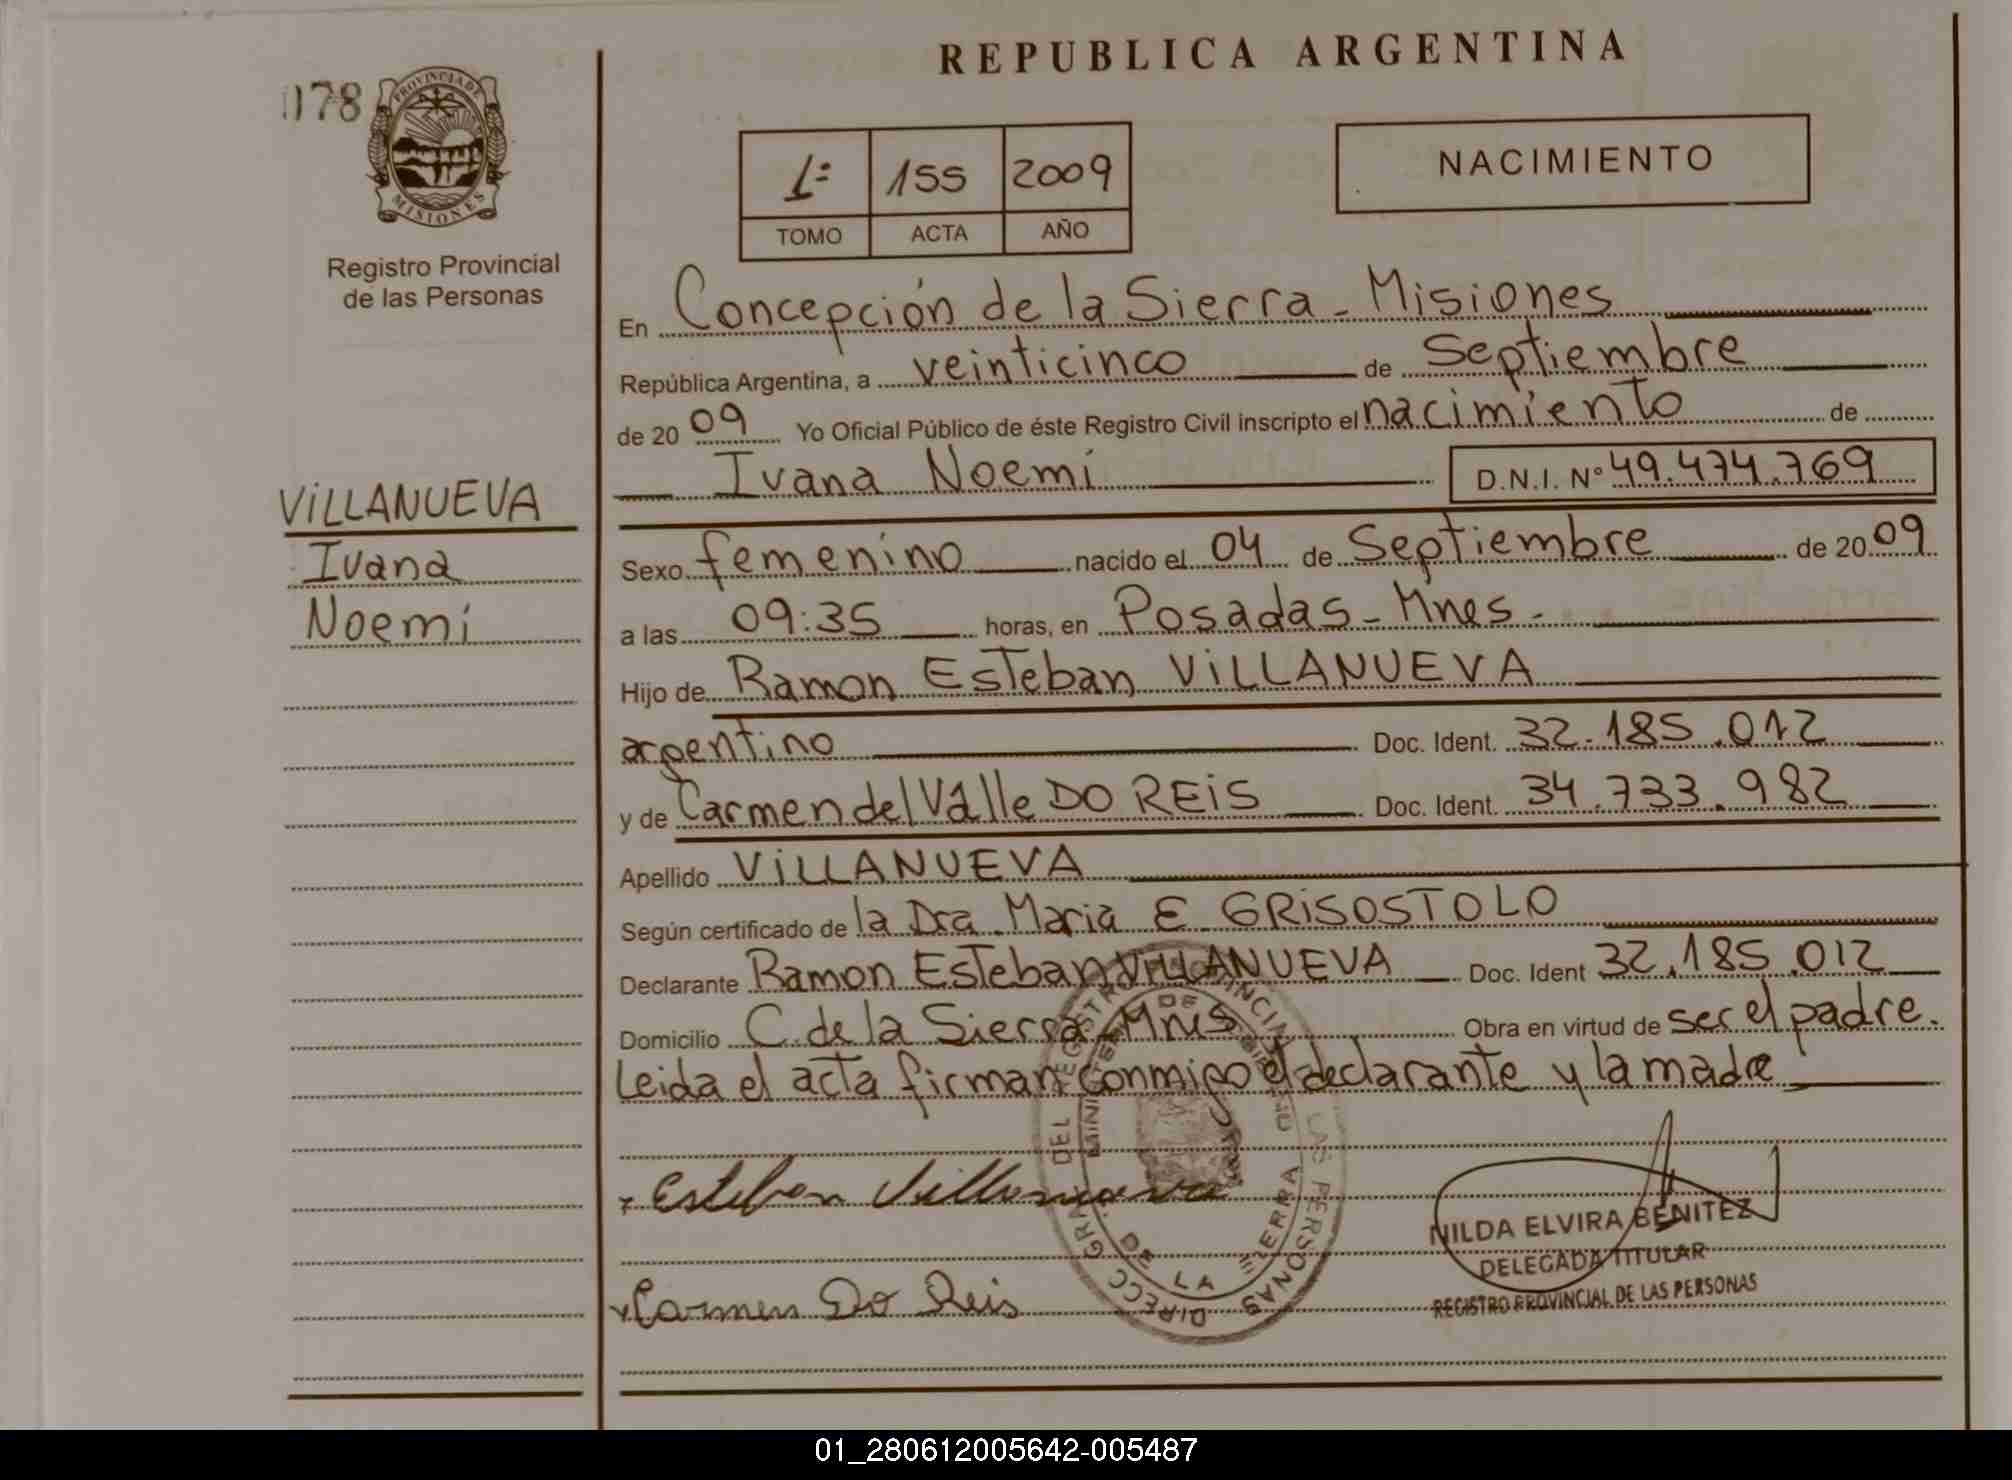 REPUBLICA ARGENTINA
178
PROVINCIA DE
MISIONES
Registro Provincial
de las Personas
1º 155 2009
TOMO ACTA AÑO
NACIMIENTO
En Concepción de la Sierra - Misiones
República Argentina, a veinticinco de Septiembre
de 20 09 Yo Oficial Público de éste Registro Civil inscripto el nacimiento de
Ivana Noemí D.N.I. Nº 49.474.769
VILLANUEVA
Ivana
Noemí
Sexo femenino nacido el 04 de Septiembre de 20 09
a las 09:35 horas, en Posadas - Mnes -
Hijo de Ramon Esteban VILLANUEVA
argentino Doc. Ident. 32.185.012
y de Carmen del Valle DO REIS Doc. Ident. 34.733.982
Apellido VILLANUEVA
Según certificado de la Dra. Maria E GRISOSTOLO
Declarante Ramon Esteban VILLANUEVA Doc. Ident 32.185.012
Domicilio C. de la Sierra - Mnes Obra en virtud de ser el padre.
Leida el acta firman conmigo el declarante y la madre
Esteban Villanueva
Carmen Do Reis
NILDA ELVIRA BENITEZ
DELEGADA TITULAR
REGISTRO PROVINCIAL DE LAS PERSONAS
01_280612005642-005487